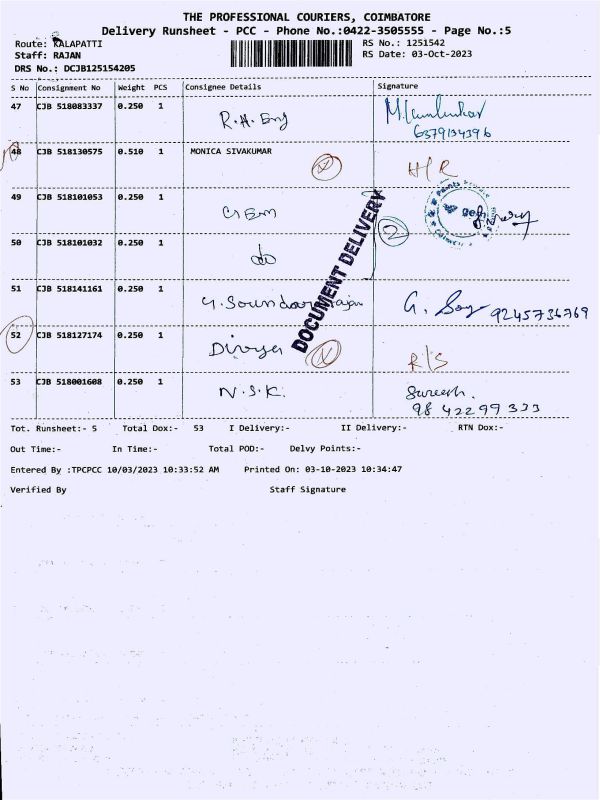 THE PROFESSIONAL COURIERS, COIMBATORE
Delivery Runsheet - PCC - Phone No.:0422-3505555 - Page No.:5
Route: KALAPATTI RS No.: 1251542
Staff: RAJAN RS Date: 03-Oct-2023
DRS No.: DCJB125154205
S No Consignment No Weight PCS Consignee Details Signature
47 CJB 518083337 0.250 1 R.H. Eng
6379134396
48 CJB 518130575 0.510 1 MONICA SIVAKUMAR H/R
49 CJB 518101053 0.250 1
50 CJB 518101032 0.250 1 do 2
DOCUMENT DELIVERY
51 CJB 518141161 0.250 1 G. Soundararajan G. 9245736769
52 CJB 518127174 0.250 1 Divya R/S
53 CJB 518001608 0.250 1 N.S.K. Suresh.
98 42299 333
Tot. Runsheet:- 5 Total Dox:- 53 I Delivery:- II Delivery:- RTN Dox:-
Out Time:- In Time:- Total POD:- Delvy Points:-
Entered By :TPCPCC 10/03/2023 10:33:52 AM Printed On: 03-10-2023 10:34:47
Verified By Staff Signature